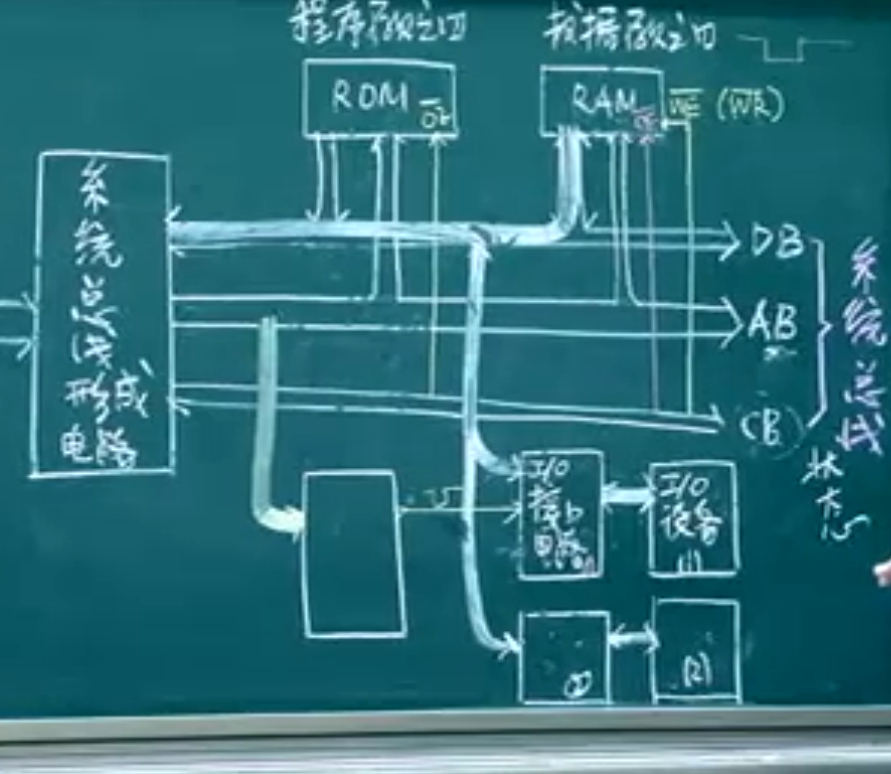 程序存放之门
数据存放之门
ROM
OE
RAM
OE
WE (WR)
系统总线形成电路
DB
AB
CB
系统总线
状态
I/O
接口
电路
(1)
I/O
设备
(1)
(2)
(2)